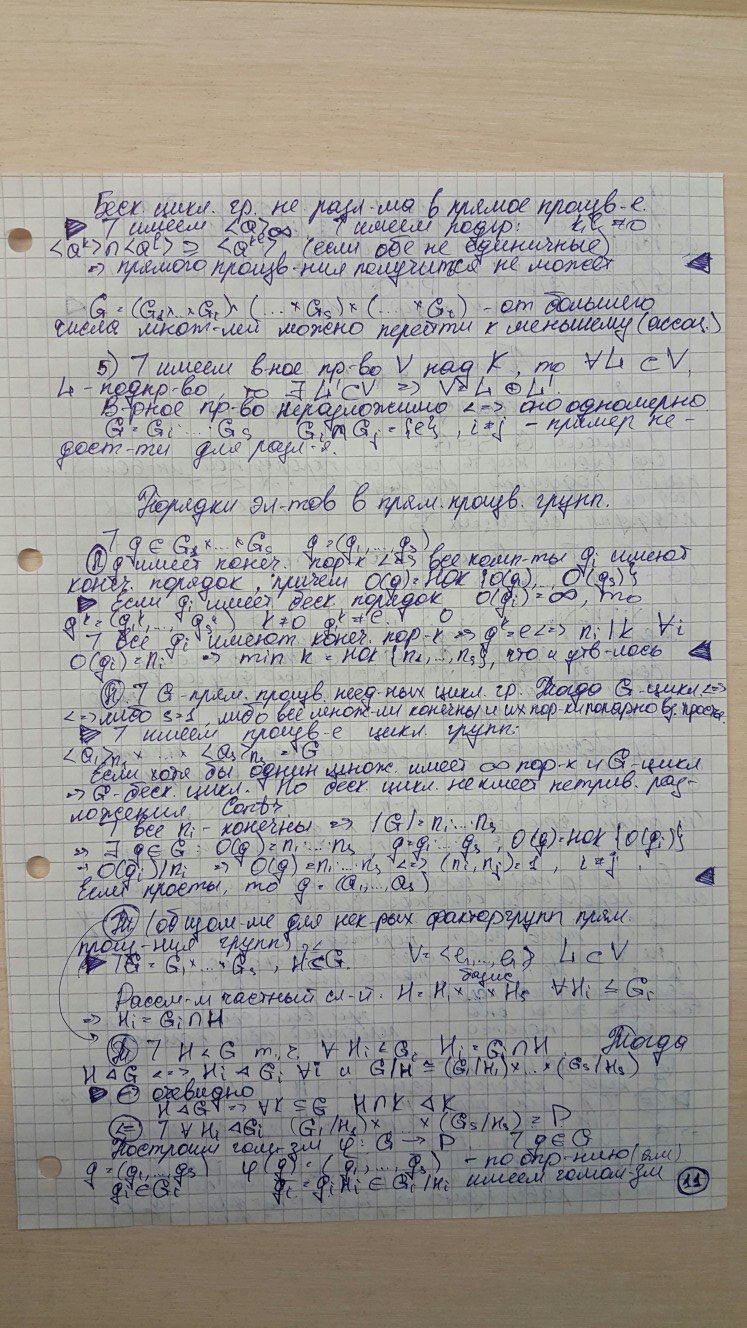 Беск. цикл. гр. не разл-ма в прямое произв-е.
▶ ] имеем <a>∞ ] имеем подгр: k,l ≠0
<a^k>∩<a^l> ⊇ <a^kl> (если обе не единичные)
⇒ прямого произв-ния получиться не может ◀
G = (G₁×...×Gᵢ)×(...×Gₛ)×(...×Gₜ) - от большего
числа множ-лей можно перейти к меньшему (ассоц.)
5) ] имеем в-ное пр-во V над K, то ∀L ⊂ V,
L - подпр-во то ∃ L' ⊂ V ⇒ V = L ⊕ L'
В-рное пр-во неразложимо <=> оно одномерно
G = G₁ ... Gₛ Gᵢ∩Gⱼ = {e}, i≠j - пример не-
дост-ти для разл-я.
Порядки эл-тов в прям. произв. групп.
] g ∈ G₁×...×Gₛ g = (g₁,...,gₛ)
Ⓛ g имеет конеч. пор-к <=> все комп-ты gᵢ имеют
конеч. порядок, причем O(g) = НОК {O(g₁),...,O(gₛ)}
▶ Если gᵢ имеет беск. порядок O(gᵢ) = ∞, то
g^k = (g₁^k,...,gₛ^k) k≠0 g^k ≠ e.
] все gᵢ имеют конеч. пор-к ⇒ g^k = e <=> nᵢ | k ∀i
O(gᵢ) = nᵢ ⇒ min k = НОК {n₁,...,nₛ}, что и утв-лось ◀
Ⓟ ] G - прям. произв. неед-ных цикл. гр. Тогда G - цикл <=>
<=> либо s=1, либо все множ-ли конечны и их пор-ки попарно вз. просты.
▶ ] имеем произв-е цикл. групп:
<a₁>n₁ × ... × <aₛ>nₛ = G
Если хотя бы один множ. имеет ∞ пор-к и G - цикл
⇒ G - беск. цикл. Но беск. цикл. не имеет нетрив. раз-
ложения
] все nᵢ - конечны ⇒ |G| = n₁...nₛ
⇒ ∃ g ∈ G: O(g) = n₁...nₛ g = g₁...gₛ, O(g) = НОК {O(gᵢ)}
O(gᵢ) | nᵢ ⇒ O(g) = n₁...nₛ <=> (nᵢ, nⱼ) = 1, i≠j.
Если просты, то g = (a₁,...,aₛ) ◀
Ⓣm (о гом-ме для нек-рых факторгрупп прям.
произ-ния групп)
▶ ] G = G₁×...×Gₛ, H ⊂ G. V = <e₁,...,eₙ> L ⊂ V
базис
Рассм-м частный сл-й. H = H₁×...×Hₛ ∀Hᵢ ≤ Gᵢ
⇒ Hᵢ = Gᵢ∩H
Ⓣm ] H < G т.ч. ∀ Hᵢ < Gᵢ Hᵢ = Gᵢ∩H Тогда
H ⊲ G <=> Hᵢ ⊲ Gᵢ ∀i и G/H ≅ (G₁/H₁)×...×(Gₛ/Hₛ)
▶ ⇒ очевидно
H ⊲ G ⇒ ∀K ⊆ G H∩K ⊲ K
⇐ ] ∀ Hᵢ ⊲ Gᵢ (G₁/H₁)×...×(Gₛ/Hₛ) = P
Построим гом-зм φ: G → P. ] g ∈ G
g = (g₁,...,gₛ) φ(g) = (g̅₁,...,g̅ₛ) - по опр-нию
gᵢ ∈ Gᵢ g̅ᵢ = gᵢHᵢ ∈ Gᵢ/Hᵢ имеем гомом-зм
11